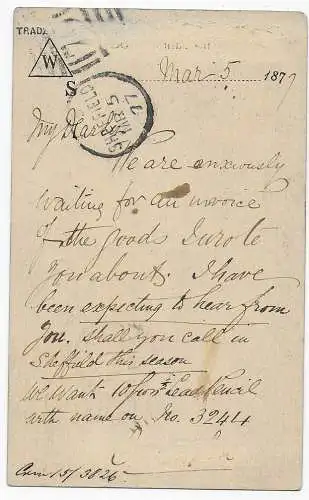 TRADE
W
S
Mar 5 1877
SHEFFIELD
MR 5
77
My Dear
We are anxiously
waiting for an invoice
of the goods I wrote
you about. I have
been expecting to hear from
you. shall you call in
Sheffield this season
we want 10 gross Lead Pencil
with name on No. 3244